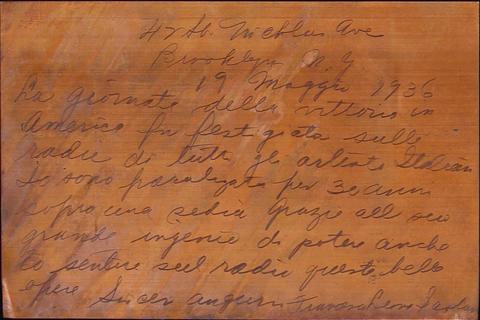 St. Nicholas Ave
Brooklyn N.Y.
19 Maggio 1936
La giornata della vittoria in
America fu festegiata sulle
radio di tutti gli artiste Italian
Io sono paralizata per 30 anni
sopra una sedia Grazie all suo
grande ingenie di potere anche
Io sentire sul radio queste belle
opere Sincer auguri